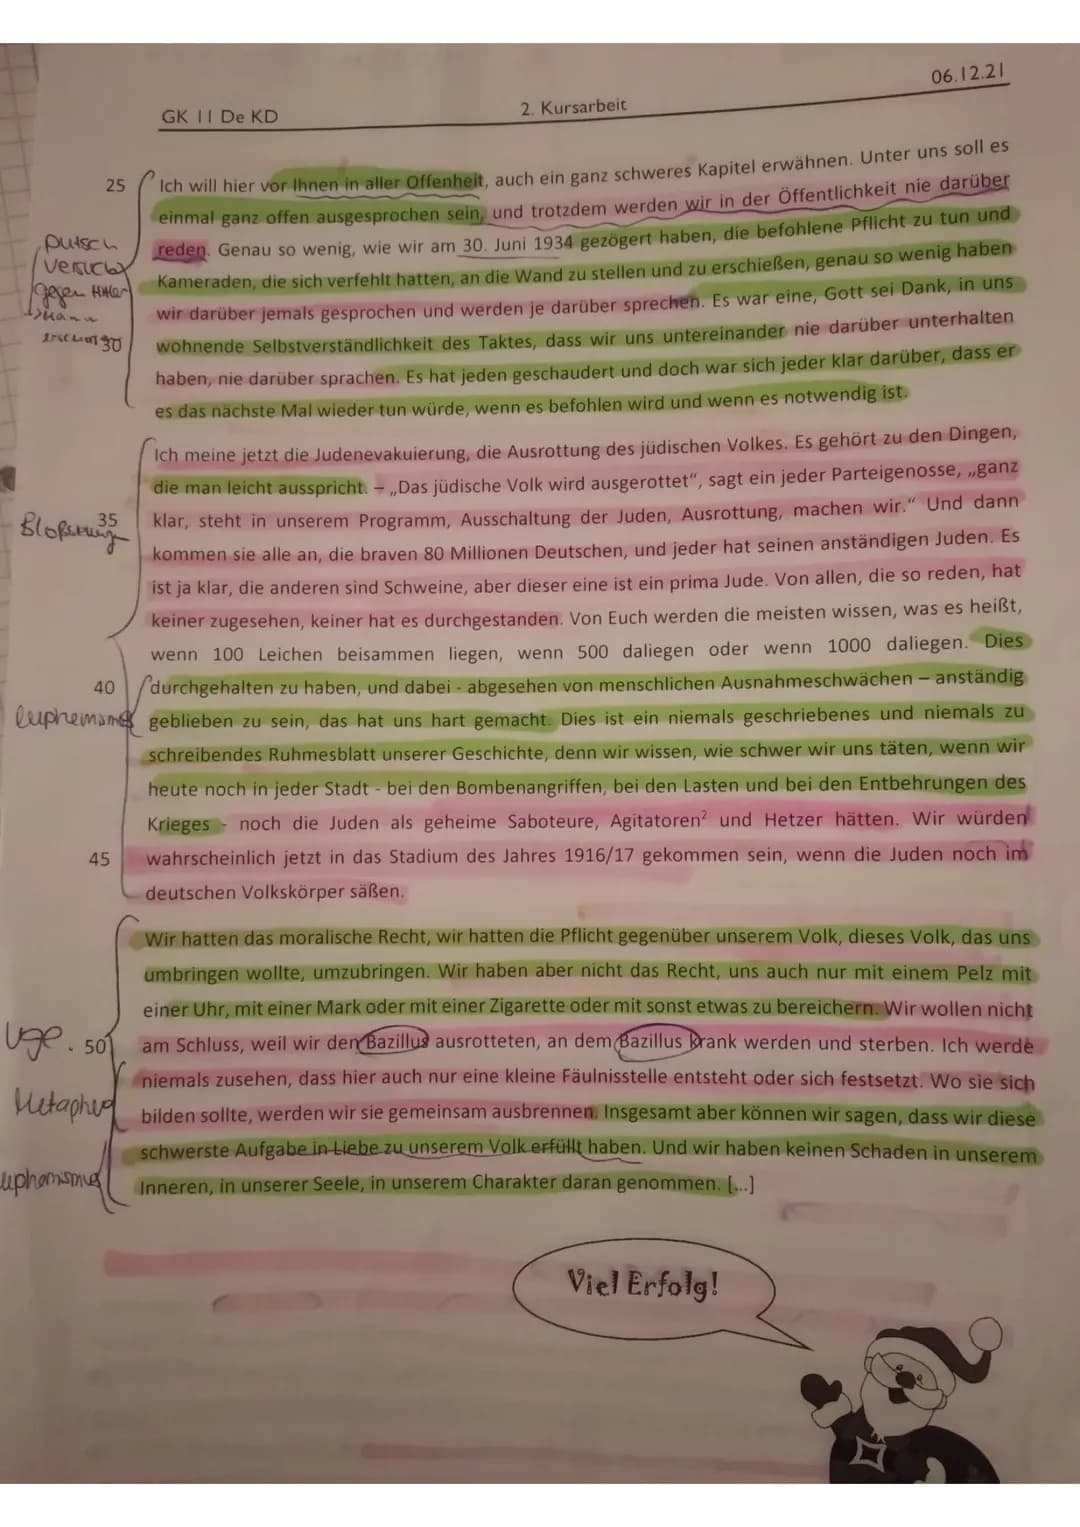 06.12.21
GK 11 De KD
2. Kursarbeit
25 Ich will hier vor Ihnen in aller Offenheit, auch ein ganz schweres Kapitel erwähnen. Unter uns soll es
einmal ganz offen ausgesprochen sein, und trotzdem werden wir in der Öffentlichkeit nie darüber
reden. Genau so wenig, wie wir am 30. Juni 1934 gezögert haben, die befohlene Pflicht zu tun und
Kameraden, die sich verfehlt hatten, an die Wand zu stellen und zu erschießen, genau so wenig haben
wir darüber jemals gesprochen und werden je darüber sprechen. Es war eine, Gott sei Dank, in uns
30 wohnende Selbstverständlichkeit des Taktes, dass wir uns untereinander nie darüber unterhalten
haben, nie darüber sprachen. Es hat jeden geschaudert und doch war sich jeder klar darüber, dass er
es das nächste Mal wieder tun würde, wenn es befohlen wird und wenn es notwendig ist.
Putsch
gegen Hitler
Ich meine jetzt die Judenevakuierung, die Ausrottung des jüdischen Volkes. Es gehört zu den Dingen,
die man leicht ausspricht. – „Das jüdische Volk wird ausgerottet“, sagt ein jeder Parteigenosse, „ganz
35 klar, steht in unserem Programm, Ausschaltung der Juden, Ausrottung, machen wir.“ Und dann
kommen sie alle an, die braven 80 Millionen Deutschen, und jeder hat seinen anständigen Juden. Es
ist ja klar, die anderen sind Schweine, aber dieser eine ist ein prima Jude. Von allen, die so reden, hat
keiner zugesehen, keiner hat es durchgestanden. Von Euch werden die meisten wissen, was es heißt,
wenn 100 Leichen beisammen liegen, wenn 500 daliegen oder wenn 1000 daliegen. Dies
40 durchgehalten zu haben, und dabei - abgesehen von menschlichen Ausnahmeschwächen – anständig
geblieben zu sein, das hat uns hart gemacht. Dies ist ein niemals geschriebenes und niemals zu
schreibendes Ruhmesblatt unserer Geschichte, denn wir wissen, wie schwer wir uns täten, wenn wir
heute noch in jeder Stadt - bei den Bombenangriffen, bei den Lasten und bei den Entbehrungen des
Krieges - noch die Juden als geheime Saboteure, Agitatoren² und Hetzer hätten. Wir würden
45 wahrscheinlich jetzt in das Stadium des Jahres 1916/17 gekommen sein, wenn die Juden noch im
deutschen Volkskörper säßen.
Wir hatten das moralische Recht, wir hatten die Pflicht gegenüber unserem Volk, dieses Volk, das uns
umbringen wollte, umzubringen. Wir haben aber nicht das Recht, uns auch nur mit einem Pelz mit
einer Uhr, mit einer Mark oder mit einer Zigarette oder mit sonst etwas zu bereichern. Wir wollen nicht
50 am Schluss, weil wir den Bazillus ausrotteten, an dem Bazillus krank werden und sterben. Ich werde
niemals zusehen, dass hier auch nur eine kleine Fäulnisstelle entsteht oder sich festsetzt. Wo sie sich
Metapher
bilden sollte, werden wir sie gemeinsam ausbrennen. Insgesamt aber können wir sagen, dass wir diese
schwerste Aufgabe in Liebe zu unserem Volk erfüllt haben. Und wir haben keinen Schaden in unserem
Inneren, in unserer Seele, in unserem Charakter daran genommen. [...]
Viel Erfolg!